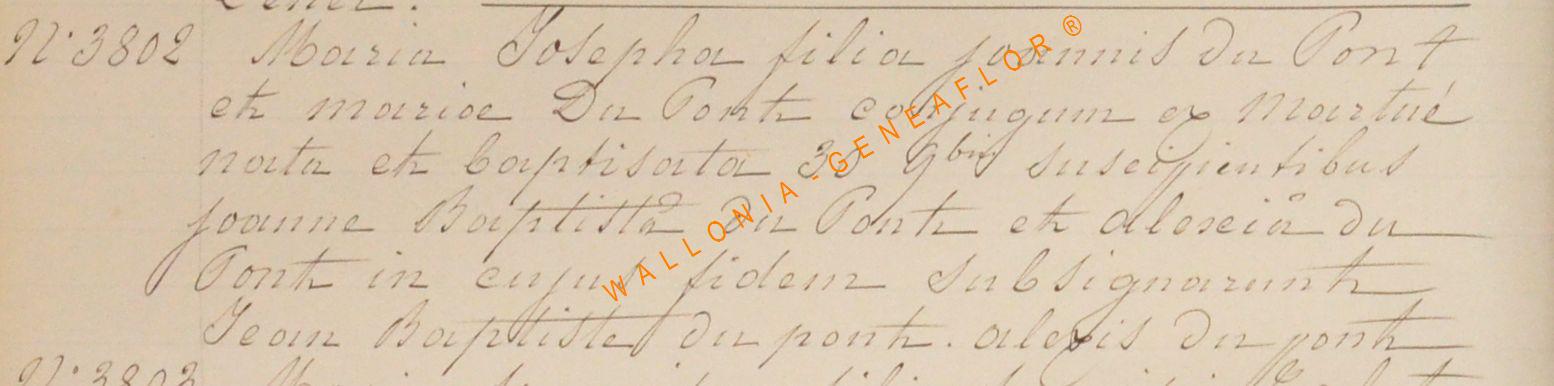 N° 3802 Maria Josepha filia joannis du Pont
et mariae Du Pont conjugum ex Martué
nata et baptisata 30 9bris suscipientibus
joanne Baptistâ du Pont et alexiâ du
Pont in cujus fidem subsignarunt
Jean Baptiste du pont. alexis du pont
N° 3803
WALLONIA-GENEAFLOR®